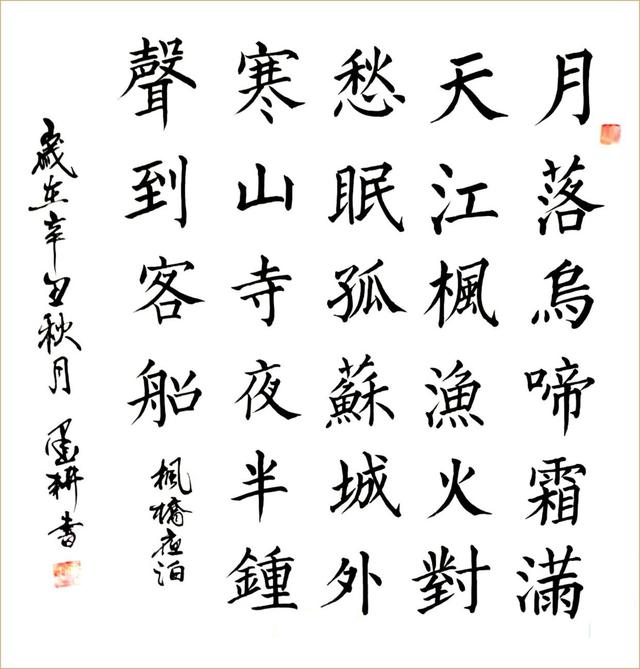 月落烏啼霜滿
天江楓漁火對
愁眠孤蘇城外
寒山寺夜半鍾
聲到客船
楓橋夜泊
歲在辛丑秋月 墨耕書